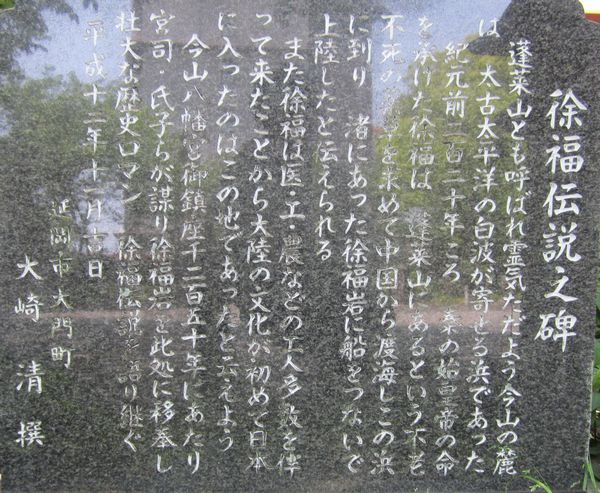 徐福伝説之碑
蓬莱山とも呼ばれ霊気ただよう今山の麓
は 太古太平洋の白波が寄せる浜であった
紀元前二百二十年ころ 秦の始皇帝の命
を承けた徐福は 蓬莱山にあるという不老
不死の を求めて中国から渡海しこの浜
に到り 渚にあった徐福岩に船をつないで
上陸したと伝えられる
また徐福は医・工・農などの工人多数を伴
って来たことから大陸の文化が初めて日本
に入ったのはこの地であったと云えよう
今山八幡宮御鎮座千二百五十年にあたり
宮司・氏子らが謀り徐福岩を此処に移奉し
壮大な歴史ロマン 徐福伝説を語り継ぐ
平成十二年十一月 日
延岡市大門町
大崎 清 撰